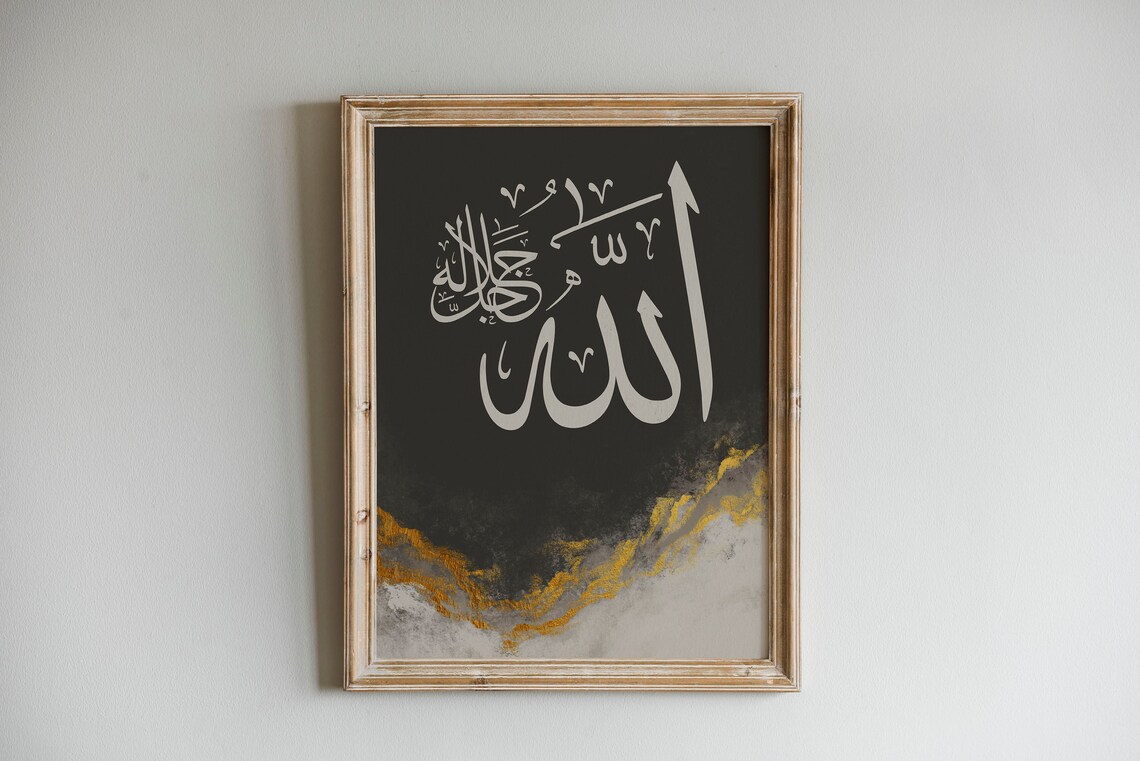 اللَّهُ
جَلَّ جَلَالُهُ